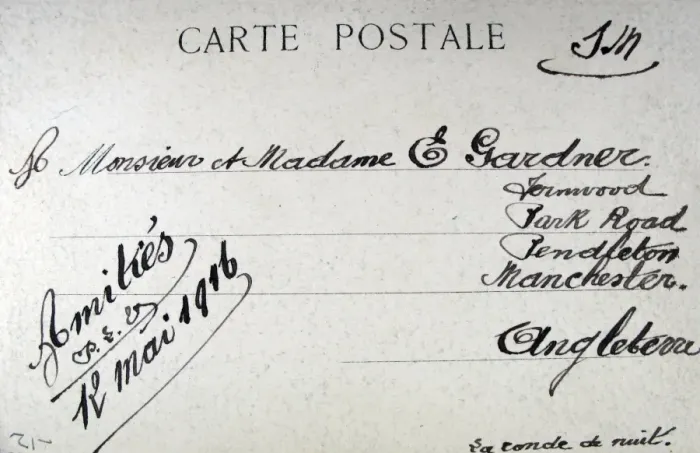 CARTE POSTALE
S.M
A Monsieur et Madame E Gardner.
Fernwood
Park Road
Pendleton
Manchester.
Angleterre
Amitiés
12 mai 1916
La ronde de nuit.